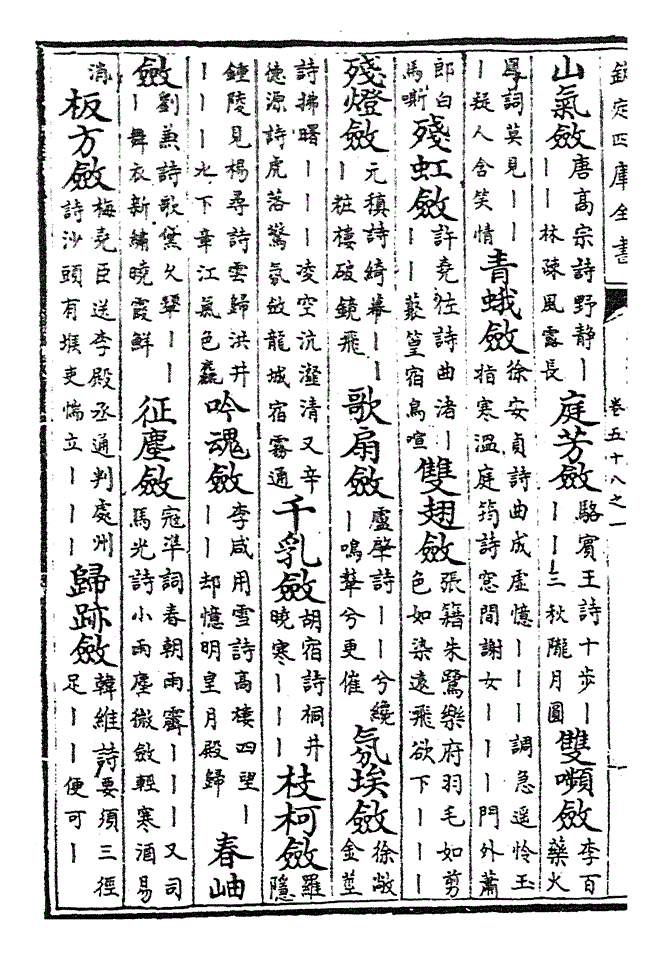 欽定四庫全書
卷五十八之一
山氣斂唐高宗詩野靜丨
丨丨林疎風露長庭芳斂駱賓王詩十步丨
丨丨三秋隴月圓雙嚬斂李百
藥火
鳳詞莫見丨丨
丨疑人含笑情青蛾斂徐安貞詩曲成虛憶丨丨丨調急遥憐玉
指寒溫庭筠詩窓間謝女丨丨丨門外蕭
郎白
馬嘶殘虹斂許堯佐詩曲渚丨
丨丨叢篁宿鳥喧雙翅斂張籍朱鷺樂府羽毛如剪
色如染遠飛欲下丨丨丨
殘燈斂元稹詩綺幕丨丨
丨粧樓破鏡飛歌扇斂盧肇詩丨丨丨兮繞
丨鳴鼙兮更催氛埃斂徐敞
金莖
詩拂曙丨丨丨凌空沆瀣清又辛
德源詩虎落驚氛斂龍城宿霧通千乳斂胡宿詩桐井
曉寒丨丨丨枝柯斂羅
隱
鍾陵見楊尋詩雲歸洪井
丨丨丨水下章江氣色麤吟魂斂李咸用雪詩高樓四望丨
丨丨却憶明皇月殿歸春岫
斂劉兼詩歌黛久顰丨丨
丨舞衣新繡曉霞鮮征塵斂寇凖詞春朝雨霽丨丨丨又司
馬光詩小雨塵微斂輕寒酒易
消
板方斂梅堯臣送李殿丞通判處州
詩沙頭有堠吏惴立丨丨丨歸跡斂韓維詩要須三徑
足丨丨便可丨